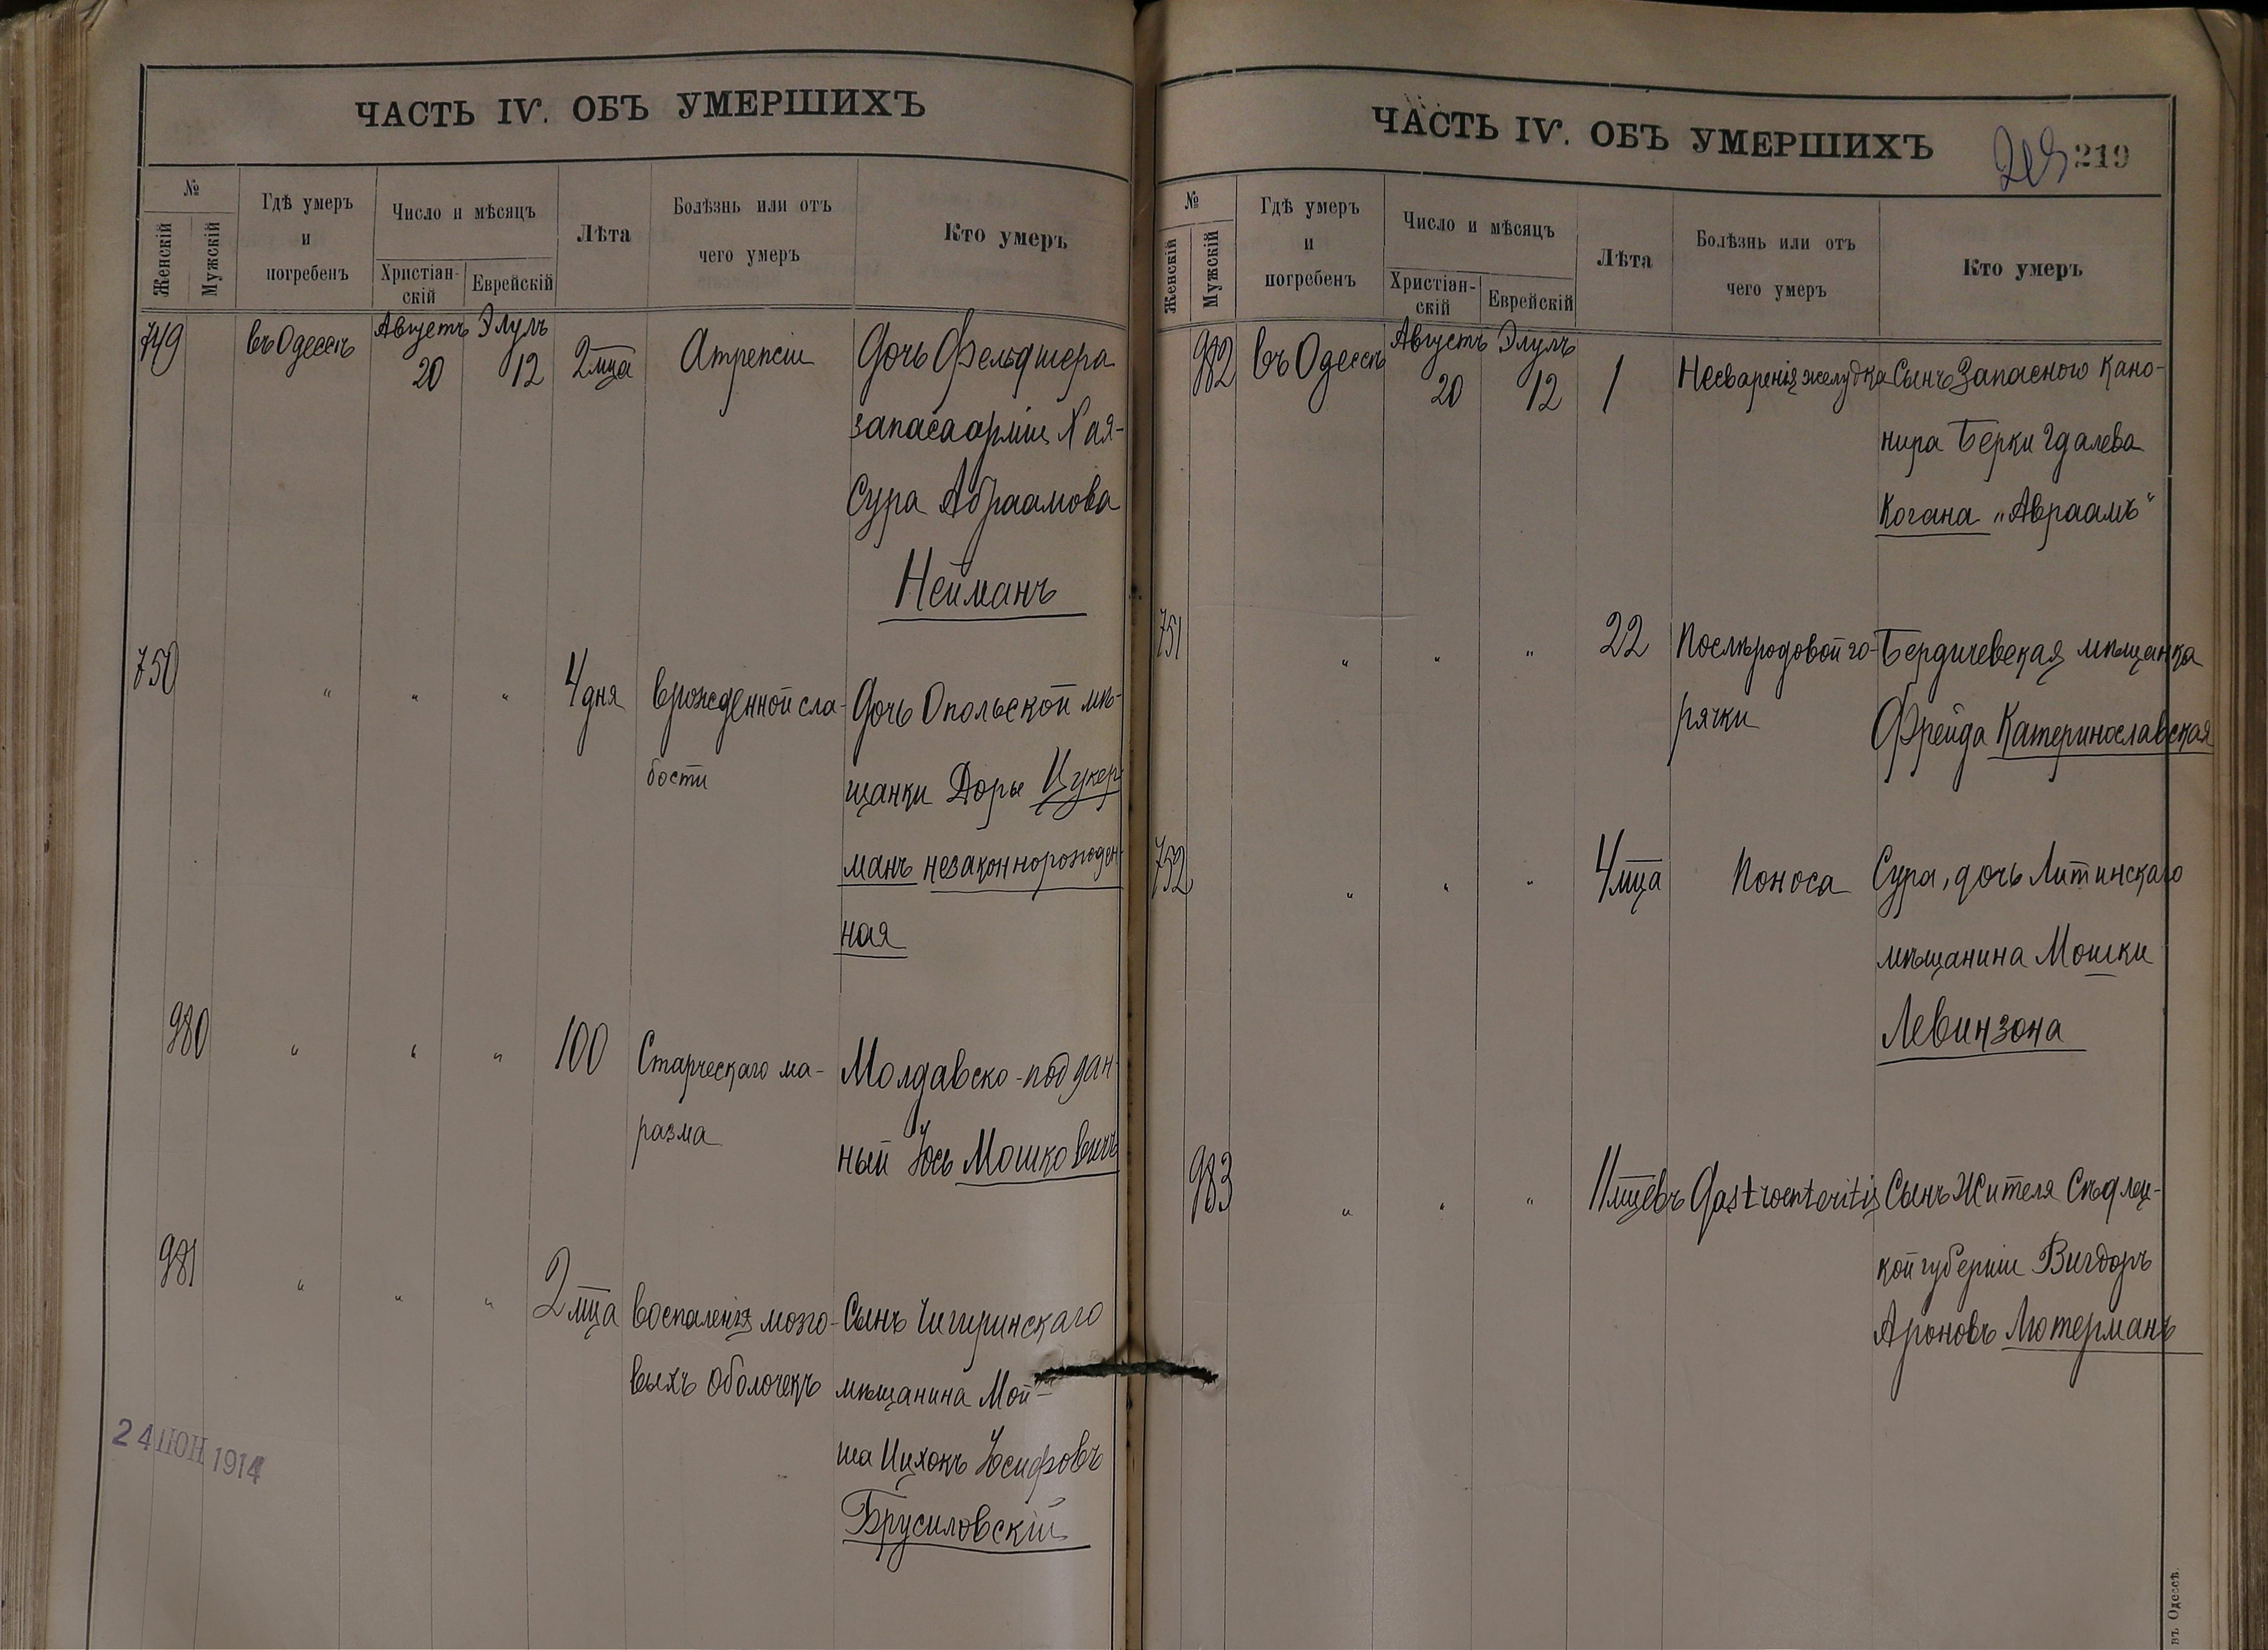 ЧАСТЬ IV. ОБЪ УМЕРШИХЪ
№
Женскій
Мужскій
Гдѣ умеръ
и
погребенъ
Число и мѣсяцъ
Христіан-
скій
Еврейскій
Лѣта
Болѣзнь или отъ
чего умеръ
Кто умеръ
749 въ Одессѣ Августъ 20 Элулъ 12 2 мца Атрепсіи Дочь Фельдшера
запаса арміи Хая-
Сура Абраамова
Нейманъ
750 " " " 4 дня врожденной сла- Дочь Опольской мѣ-
бости щанки Доры Цукер
манъ незаконнорожден-
ная
980 " " " 100 Старческаго ма- Молдавско-поддан-
разма ный Іось Мошковичъ
981 " " " 2 мца воспаленія мозго- Сынъ Чигиринскаго
выхъ оболочекъ мѣщанина Мой-
ша Ицхокъ Іосифовъ
Брусиловскій
24 ІЮН 1914
ЧАСТЬ IV. ОБЪ УМЕРШИХЪ
219
№
Женскій
Мужскій
Гдѣ умеръ
и
погребенъ
Число и мѣсяцъ
Христіан-
скій
Еврейскій
Лѣта
Болѣзнь или отъ
чего умеръ
Кто умеръ
982 въ Одессѣ Августъ 20 Элулъ 12 1 Несваренія желудка Сынъ Запасного Кано-
нира Берки Гдалева
Когана „Авраамъ“
751 " " " 22 Послѣродовой го- Бердичевская мѣщанка
рячки Фрейда Катеринославская
752 " " " 4 мца Поноса Сура, дочь Литинскаго
мѣщанина Мошки
Левинзона
983 " " " 11 мцевъ Gastroenteritis Сынъ жителя Сѣдлец-
кой губерніи Вигдоръ
Ароновъ Лютерманъ
въ Одессѣ.